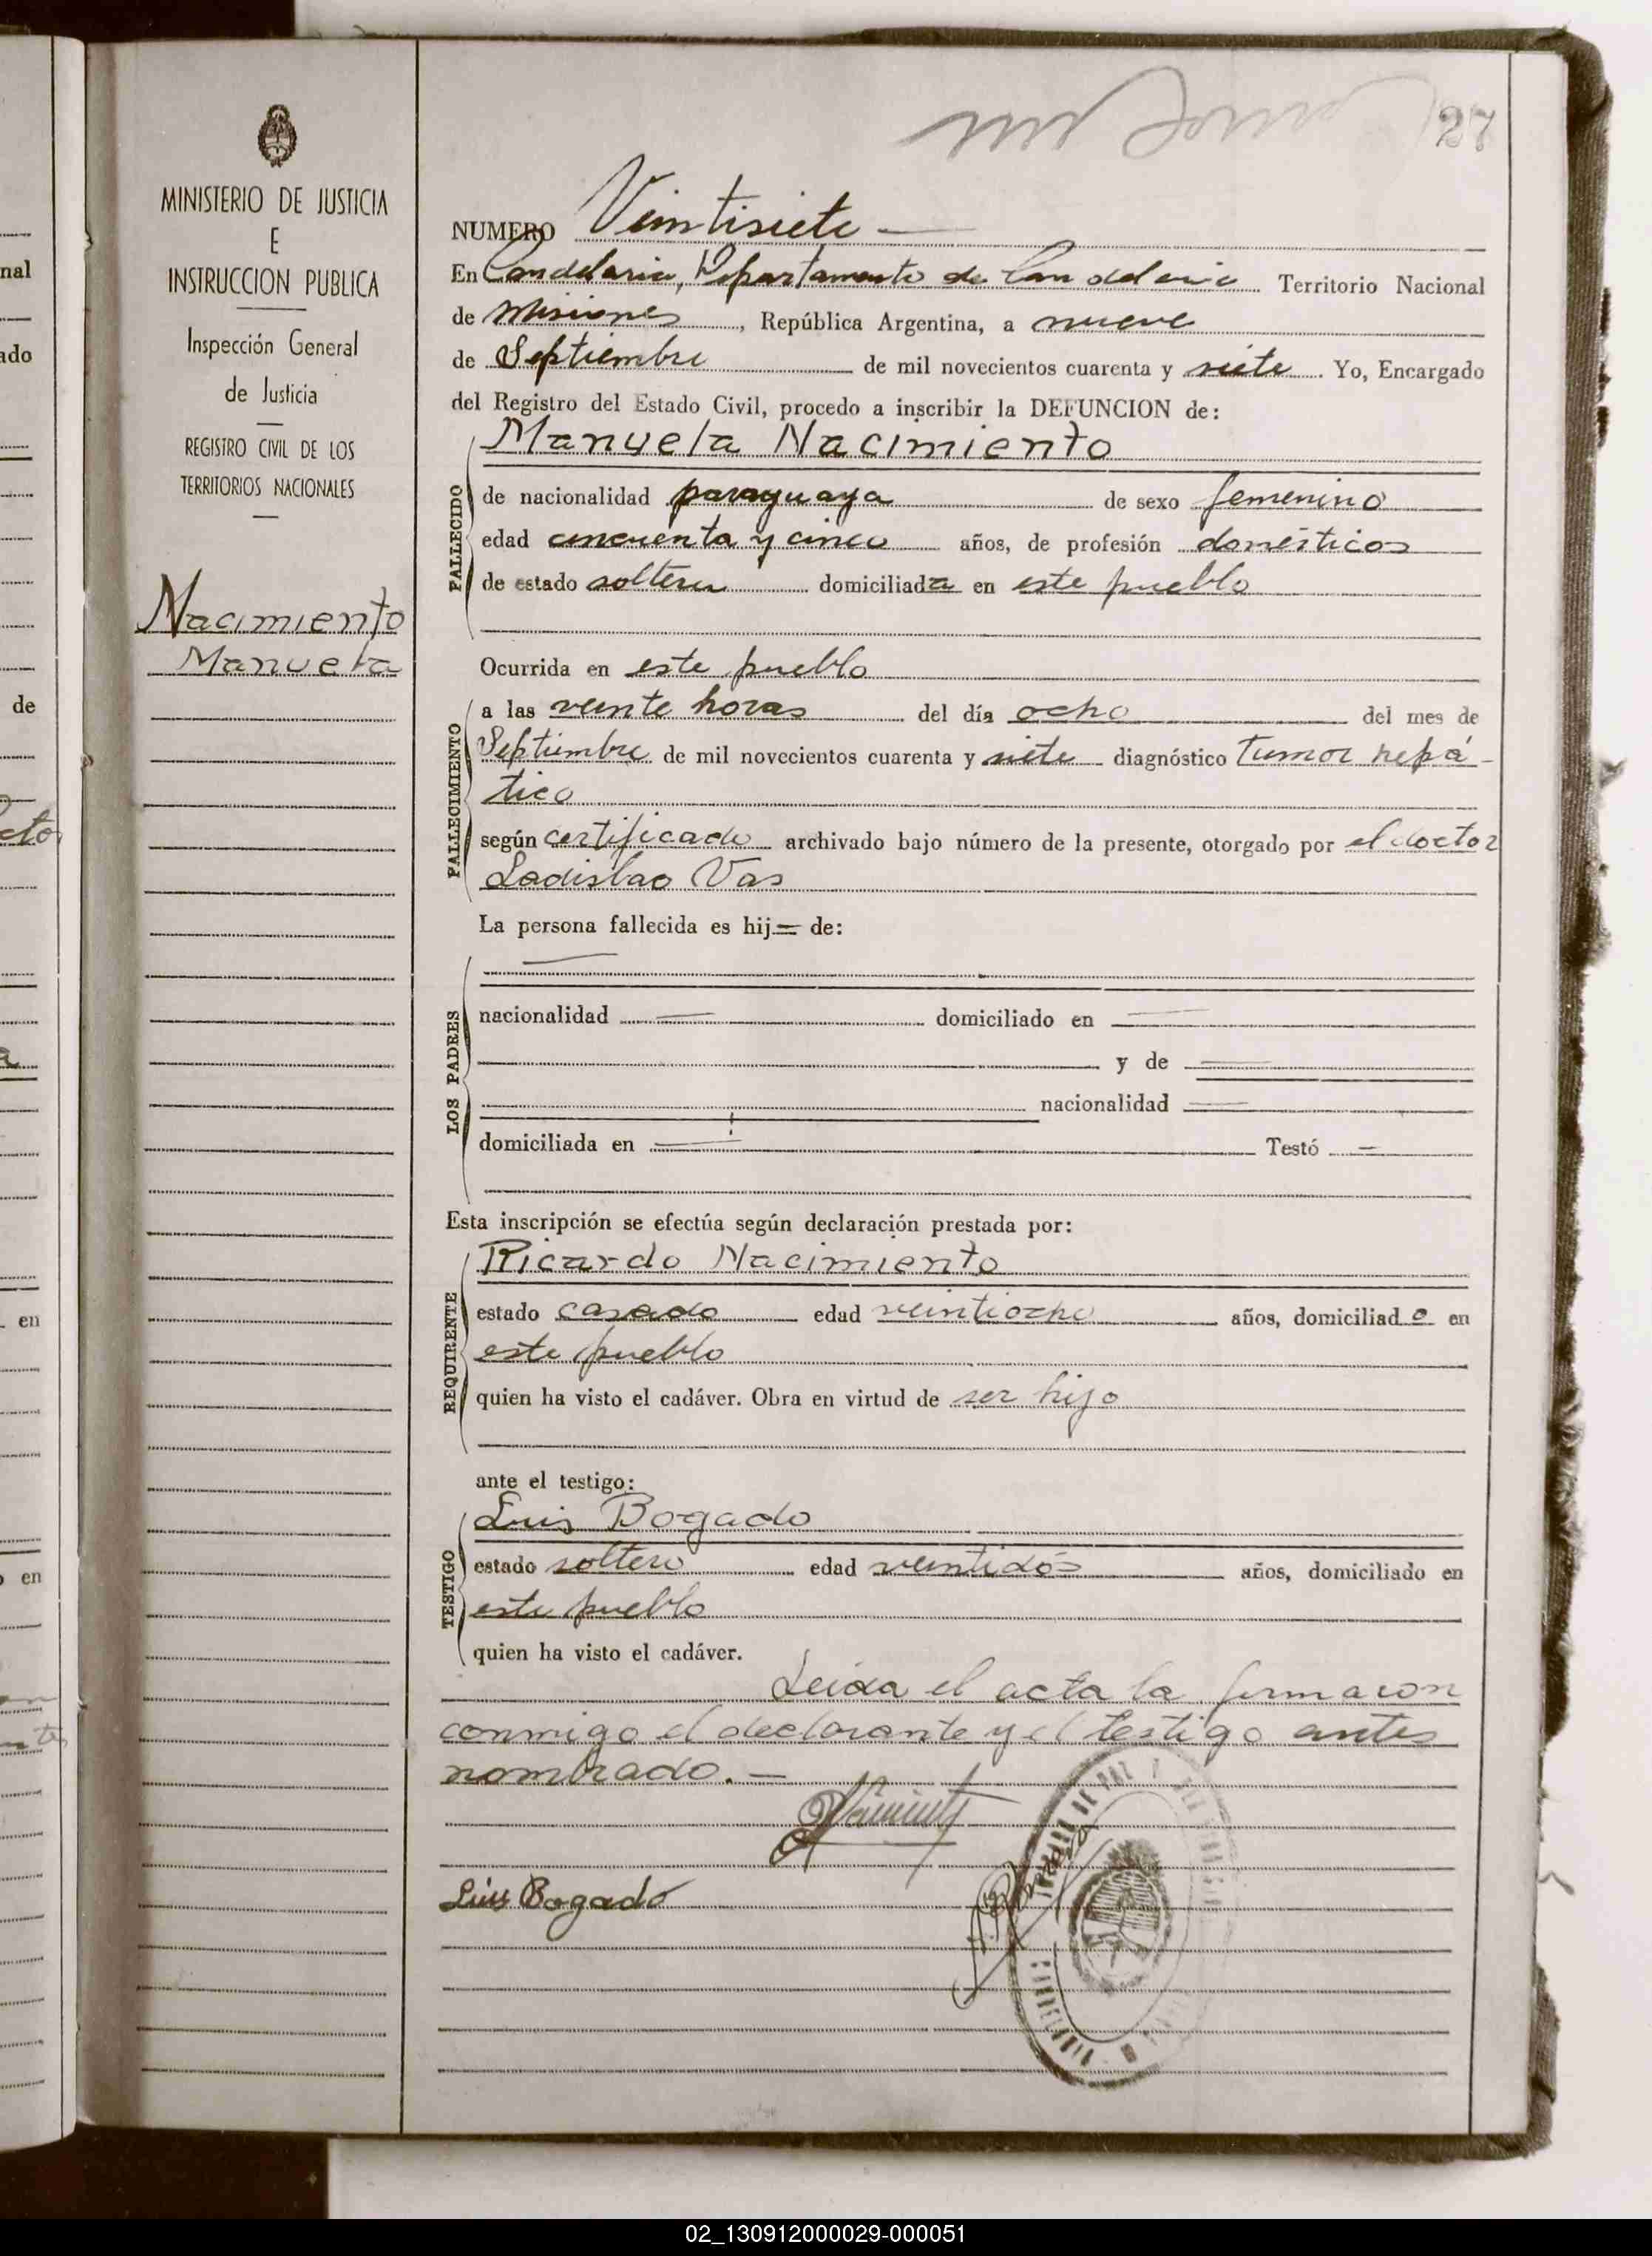 27
MINISTERIO DE JUSTICIA
E
INSTRUCCION PUBLICA
Inspección General
de Justicia
REGISTRO CIVIL DE LOS
TERRITORIOS NACIONALES
Nacimiento
Manuela
NUMERO Veintisiete —
En Candelaria, Departamento de Candelaria Territorio Nacional
de Misiones, República Argentina, a nueve
de Septiembre de mil novecientos cuarenta y siete. Yo, Encargado
del Registro del Estado Civil, procedo a inscribir la DEFUNCION de:
Manuela Nacimiento
FALLECIDO
de nacionalidad paraguaya de sexo femenino
edad cincuenta y cinco años, de profesión domésticos
de estado soltera domiciliada en este pueblo
Ocurrida en este pueblo
FALLECIMIENTO
a las veinte horas del día ocho del mes de
Septiembre de mil novecientos cuarenta y siete diagnóstico Tumor hepá-
tico
según certificado archivado bajo número de la presente, otorgado por el doctor
Ladislao Vas
La persona fallecida es hij= de:
—
LOS PADRES
nacionalidad — domiciliado en —
y de —
nacionalidad —
domiciliada en — Testó —
Esta inscripción se efectúa según declaración prestada por:
Ricardo Nacimiento
REQUIRENTE
estado casado edad veintiocho años, domiciliado en
este pueblo
quien ha visto el cadáver. Obra en virtud de ser hijo
ante el testigo:
Luis Bogado
TESTIGO
estado soltero edad veintidós años, domiciliado en
este pueblo
quien ha visto el cadáver.
Leida el acta la firmaron
conmigo el declarante y el testigo antes
nombrado. —
Luis Bogado
CANDELARIA
nal
ado
de
en
en
02_130912000029-000051